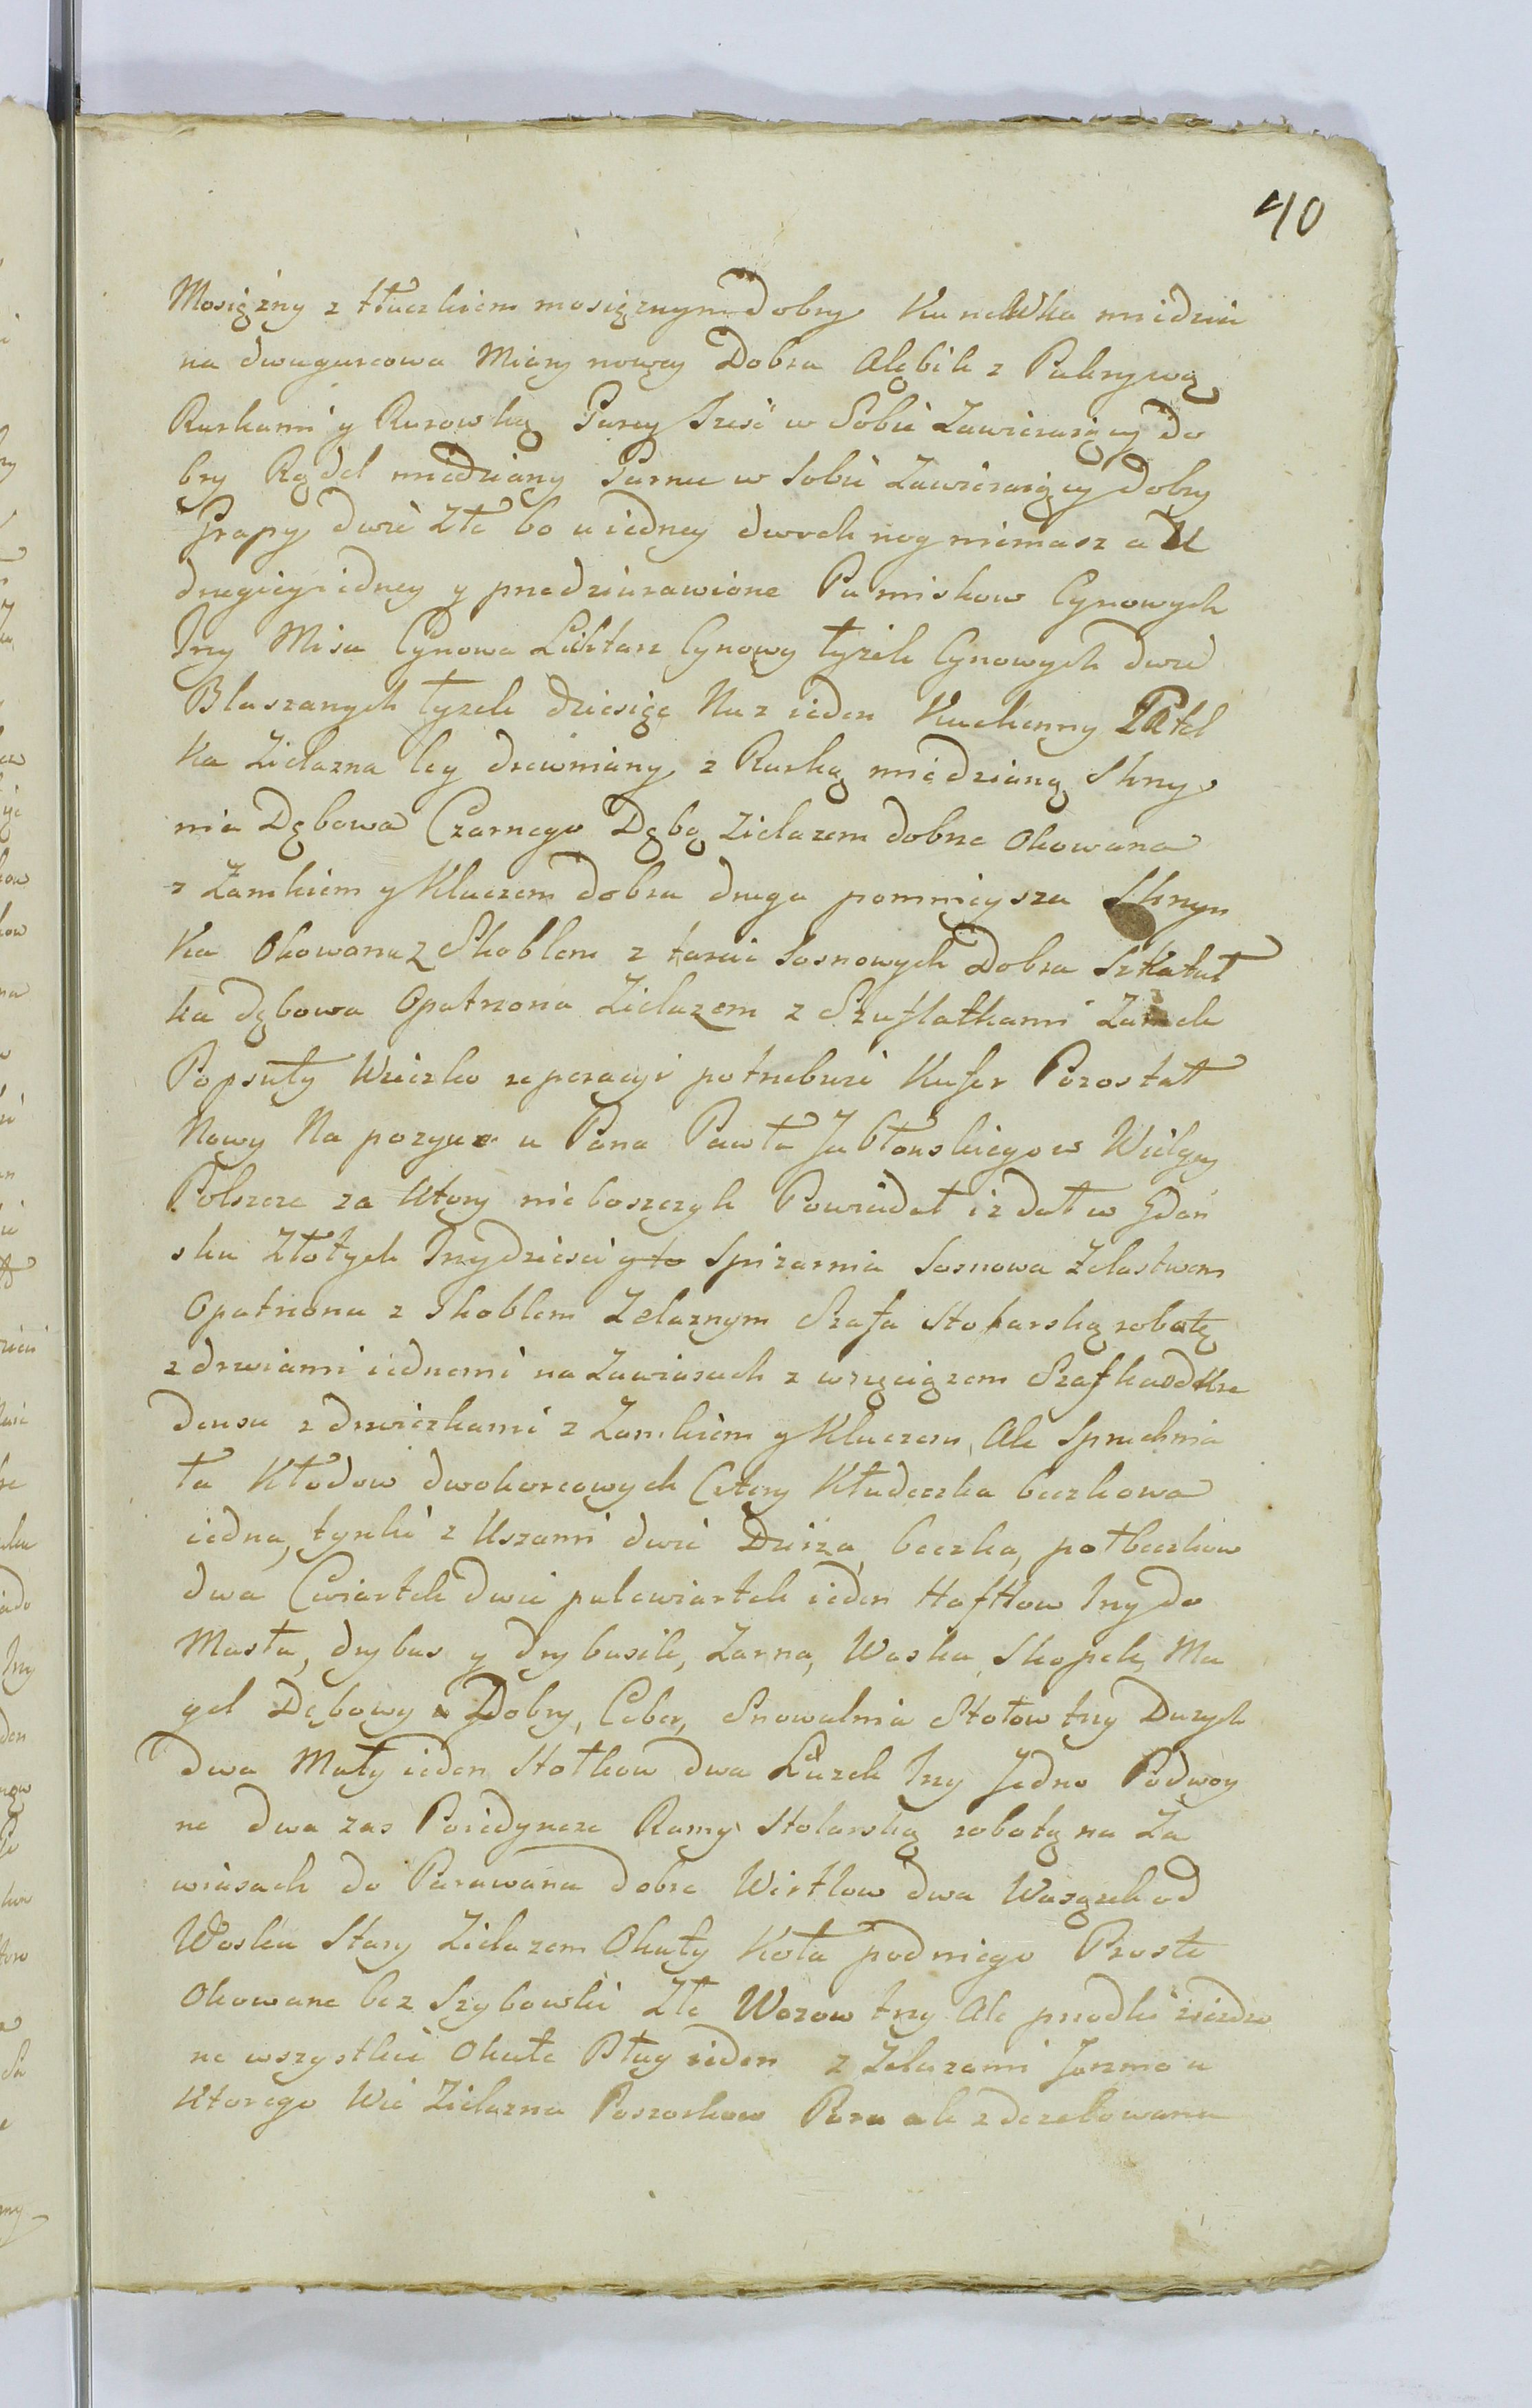 40
Mosiężny z tłuczkiem mosiężnym Dobry Konewka miedzia
na dwugarcowa Miary nowey Dobra Alębik z Pokrywą
Rurkami y Rurowką Garcy Szesć w Sobie Zawieraiący Do
bry Rądel miedziany Garniec w Sobie Zawieraiący Dobry
Grapy dwie Złe bo u iedney dwoch nog niemasz a U
drugiey iedney y predziurawione Pułmiskow Cynowych
Trzy Misa Cynowa Lichtarz Cynowy Łyżek Cynowych dwie
Blaszanych Łyżek dziesięć Noz ieden Kuchenny Patel
Ka Zielazna Ley drewniany z Rurką miedzianą Skrzy
nia Dębowa Czarnego Dębą Zielazem dobrze Okowana
z Zamkiem y Kluczem dobra druga pomnieysza Skrzyn
Ka Okowana z Skoblem z tarcic Sosnowych Dobra Szkatuł
ka dębowa Opatrzona Zielazem z Szuflatkami Zamek
Popsuty Wieczko reperacyi potrzebuie Kufer Pozostał
Nowy Na pozyce u Pana Pawła Jabłonskiego w Wielgiey
Polszcze za Ktory nieboszczyk Powiadał iz dał w Gdan
sku Złotych Trzydziesci y to Spizarnia Sosnowa Zelastwem
Opatrzona z skoblem Zelaznym Szafa Stolarską robotą
z drzwiami iednemi na Zawiasach z wrzeciązem Szafka od Kre
densu z drzwiczkami z Zamkiem y Kluczem, Ale Spruchnia
ła Kłodow dwokorcowych Cztery Kłudeczka beczkowa
iedna, tynki z Uszami dwie Dzieza, beczka, połbeczkow
dwa Cwiartek dwie pulcwiartek ieden Hafftow Trzy do
Masła, drybus y drybusik, Zarna, Waska, Skopek, Ma
gel Dębowy Dobry, Ceber, Snowalnia Stołow trzy Duzych
dwa Mały ieden Stołkow dwa Łuzek Trzy Jedno Podwoy
ne dwa zas Poiedyncze Ramy Stolarską robotą na Za
wiasach do Parawana dobre Wirtlow dwa Wasążek od
Woska Stary Zielazem Okuty Koła pod niego Proste
Okowane bez Szybowski Złe Wozow trzy Ale przodki
ne wszystkie Okute Pług ieden z Zelazami Jarzmo u
Ktorego Wie Zielazna Poszorkow Para ale zdezelowana